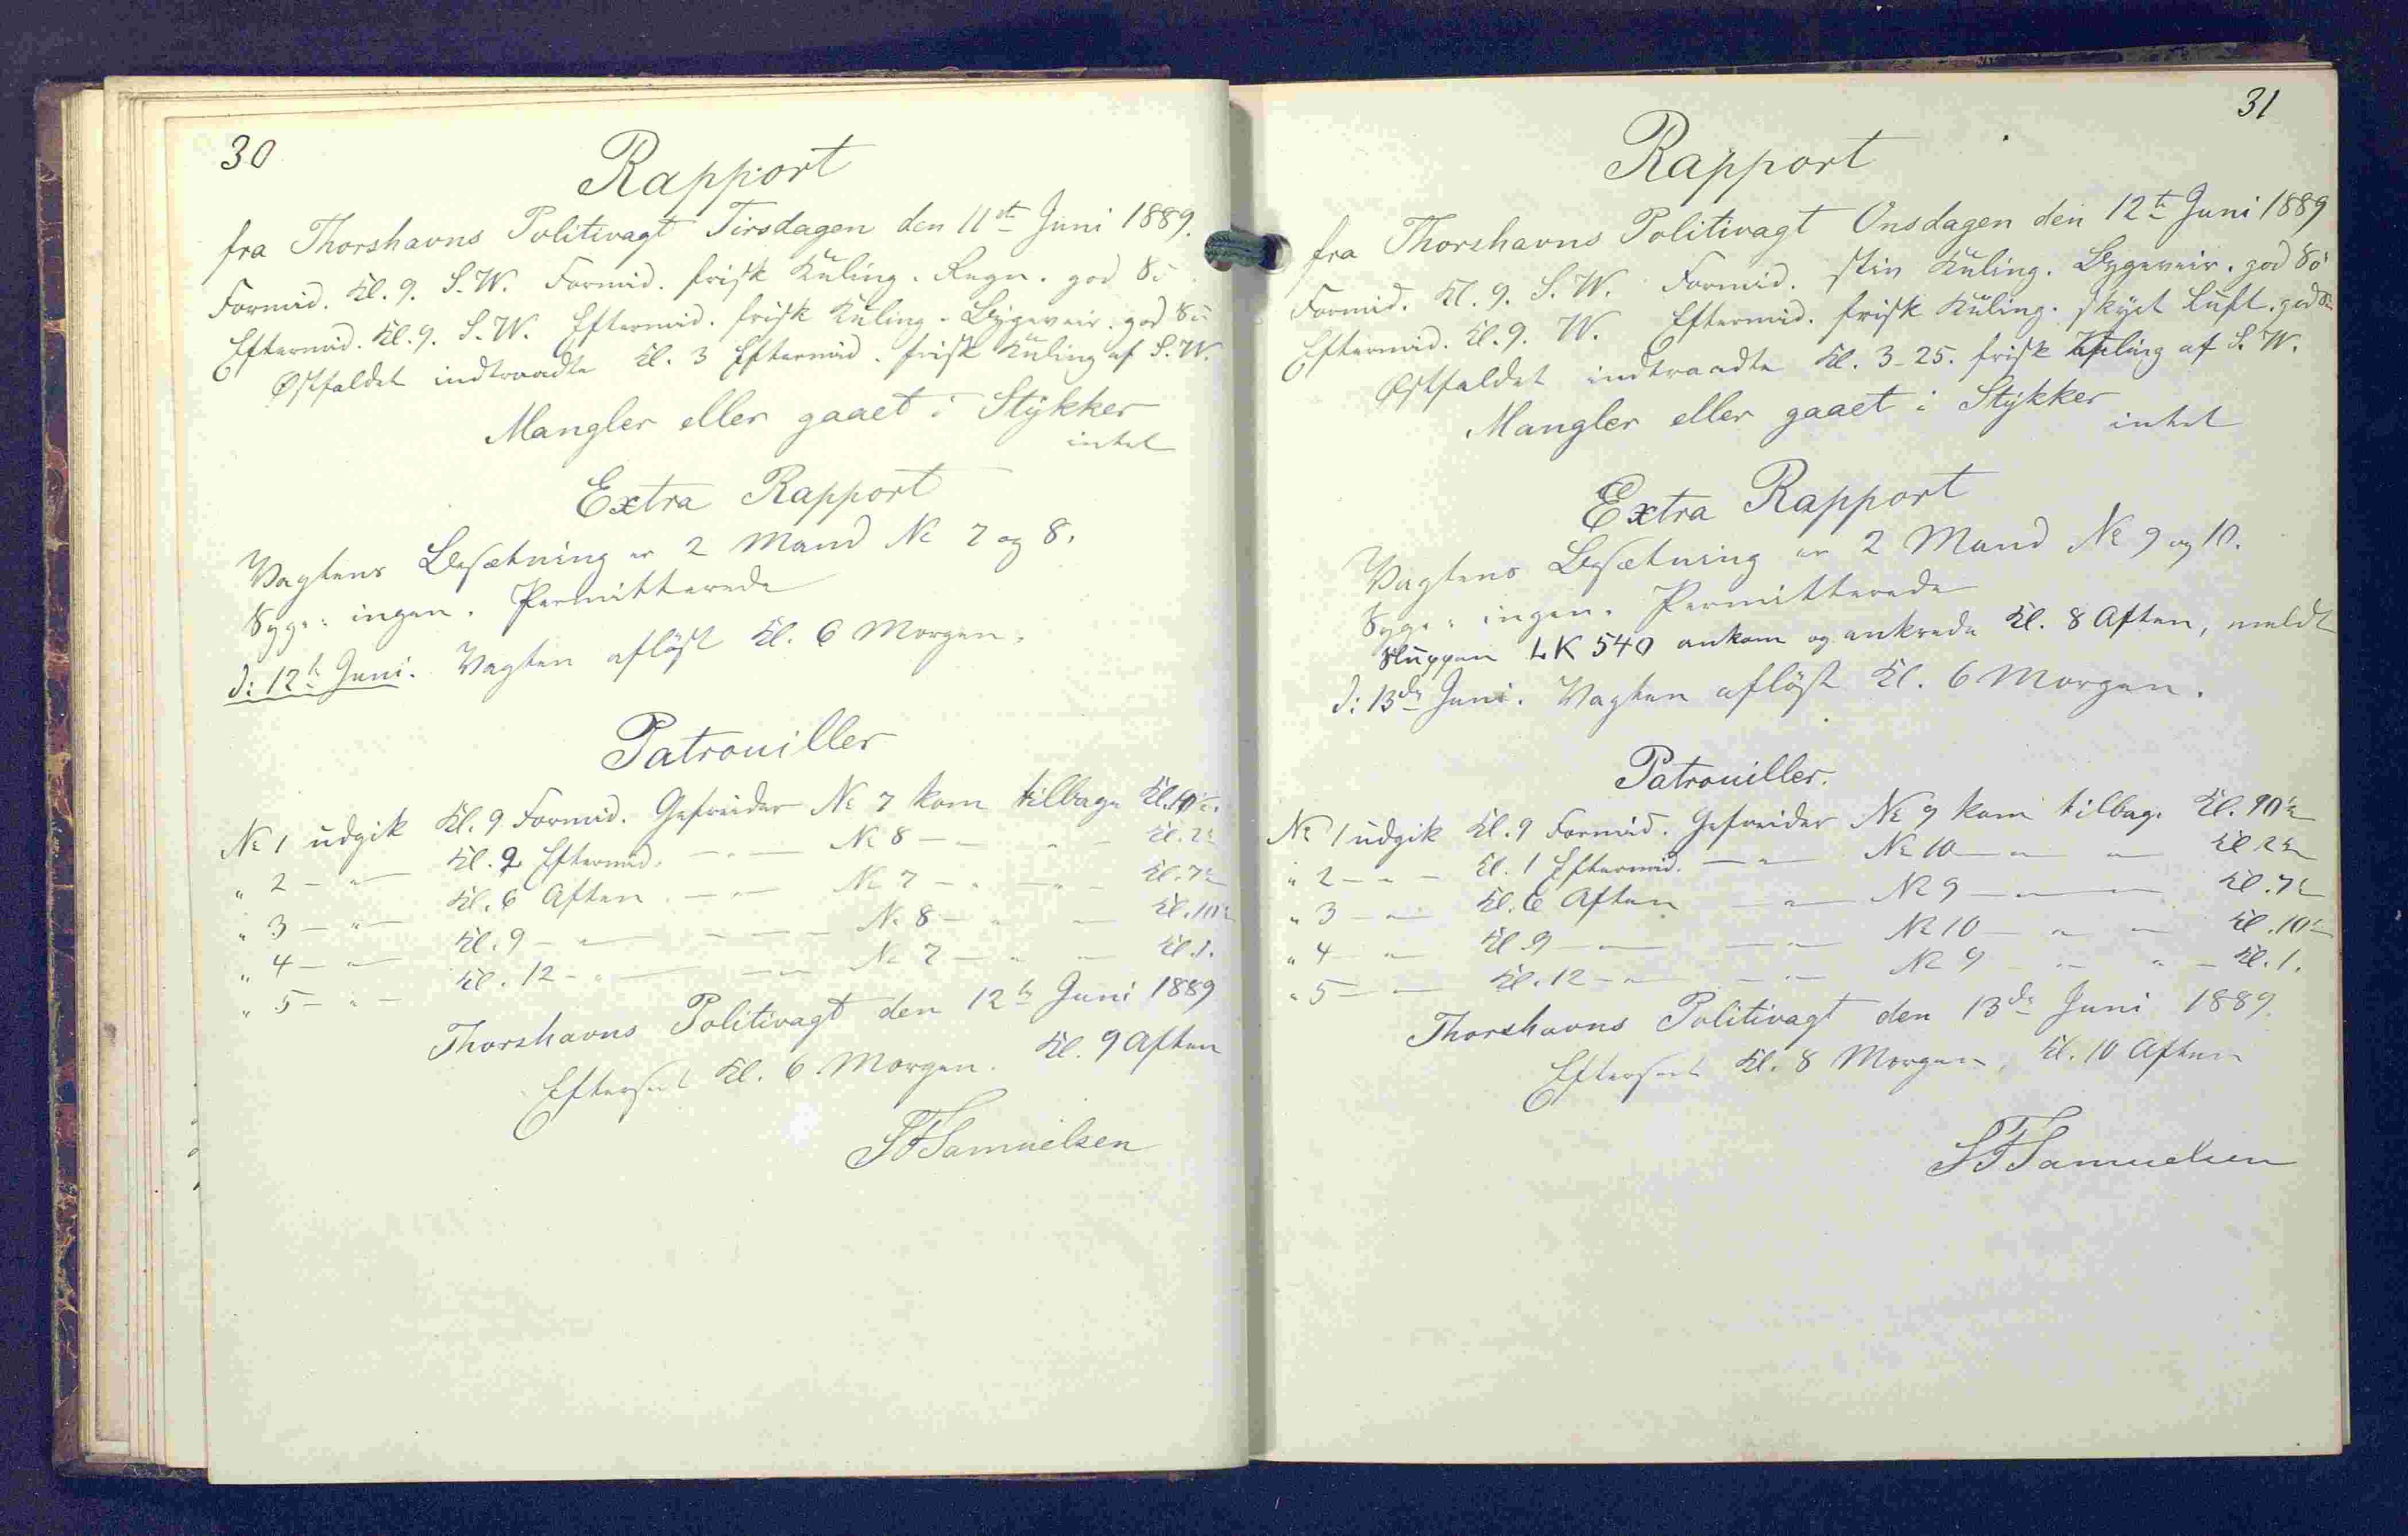 30
Rapport
fra Thorshavns Politivagt Tirsdagen den 11te Juni 1889.
Formid. Kl. 9. S.W. Formid. frisk Kuling. Regn. god Sö
Eftermid. Kl. 9. S.W. Eftermid. frisk Kuling. Bygeveir. god Sö
Østfaldet indtraadte Kl. 3 Eftermid. frisk Kuling af S.W.
Mangler eller gaaet i Stykker
intet
Extra Rapport
Vagtens Besætning er 2 Mand № 7 og 8.
Syge: ingen. Permitterede
d: 12te Juni. Vagten aflöst Kl. 6 Morgen.
Patrouiller
№ 1 udgik Kl. 9 Formid. Gefreider № 7 kom tilbage Kl. 10½.
" 2 — " — Kl. 2 Eftermid. — " — № 8 — " — " — Kl. 2½
" 3 — " — Kl. 6 Aften — " — № 7 — " — " — Kl. 7½
" 4 — " — Kl. 9 — " — — " — № 8 — " — Kl. 10½
" 5 — " — Kl. 12 — " — — " — № 7 — " — Kl. 1.
Thorshavns Politivagt den 12te Juni 1889
Efterseet Kl. 6 Morgen. Kl. 9 Aften
SFSamuelsen
31
Rapport
fra Thorshavns Politivagt Onsdagen den 12te Juni 1889
Formid. Kl. 9. S.W. Formid. stiv Kuling. Bygeveir. god Sö
Eftermid. Kl. 9. W. Eftermid. frisk Kuling. skyet Luft. god Sö
Østfaldet indtraadte Kl. 3-25. frisk Kuling af S.W.
Mangler eller gaaet i Stykker
intet
Extra Rapport
Vagtens Besætning er 2 Mand № 9 og 10.
Syge: ingen. Permitterede
Sluppen LK 540 ankom og ankrede Kl. 8 Aften, meldt
d: 13de Juni. Vagten aflöst Kl. 6 Morgen.
Patrouiller.
№ 1 udgik Kl. 9 Formid. Gefreider № 9 kom tilbage Kl. 10½
" 2 — " — Kl. 1 Eftermid. — " — № 10 — " — " — Kl 2½
" 3 — " — Kl. 6 Aften — " — № 9 — " — Kl. 7½
" 4 — " — Kl. 9 — " — — " — № 10 — " — " — Kl. 10½
" 5 — " — Kl. 12 — " — — " — № 9 — " — " — Kl. 1.
Thorshavns Politivagt den 13de Juni 1889.
Efterseet Kl. 8 Morgen, Kl. 10 Aften
SFSamuelsen